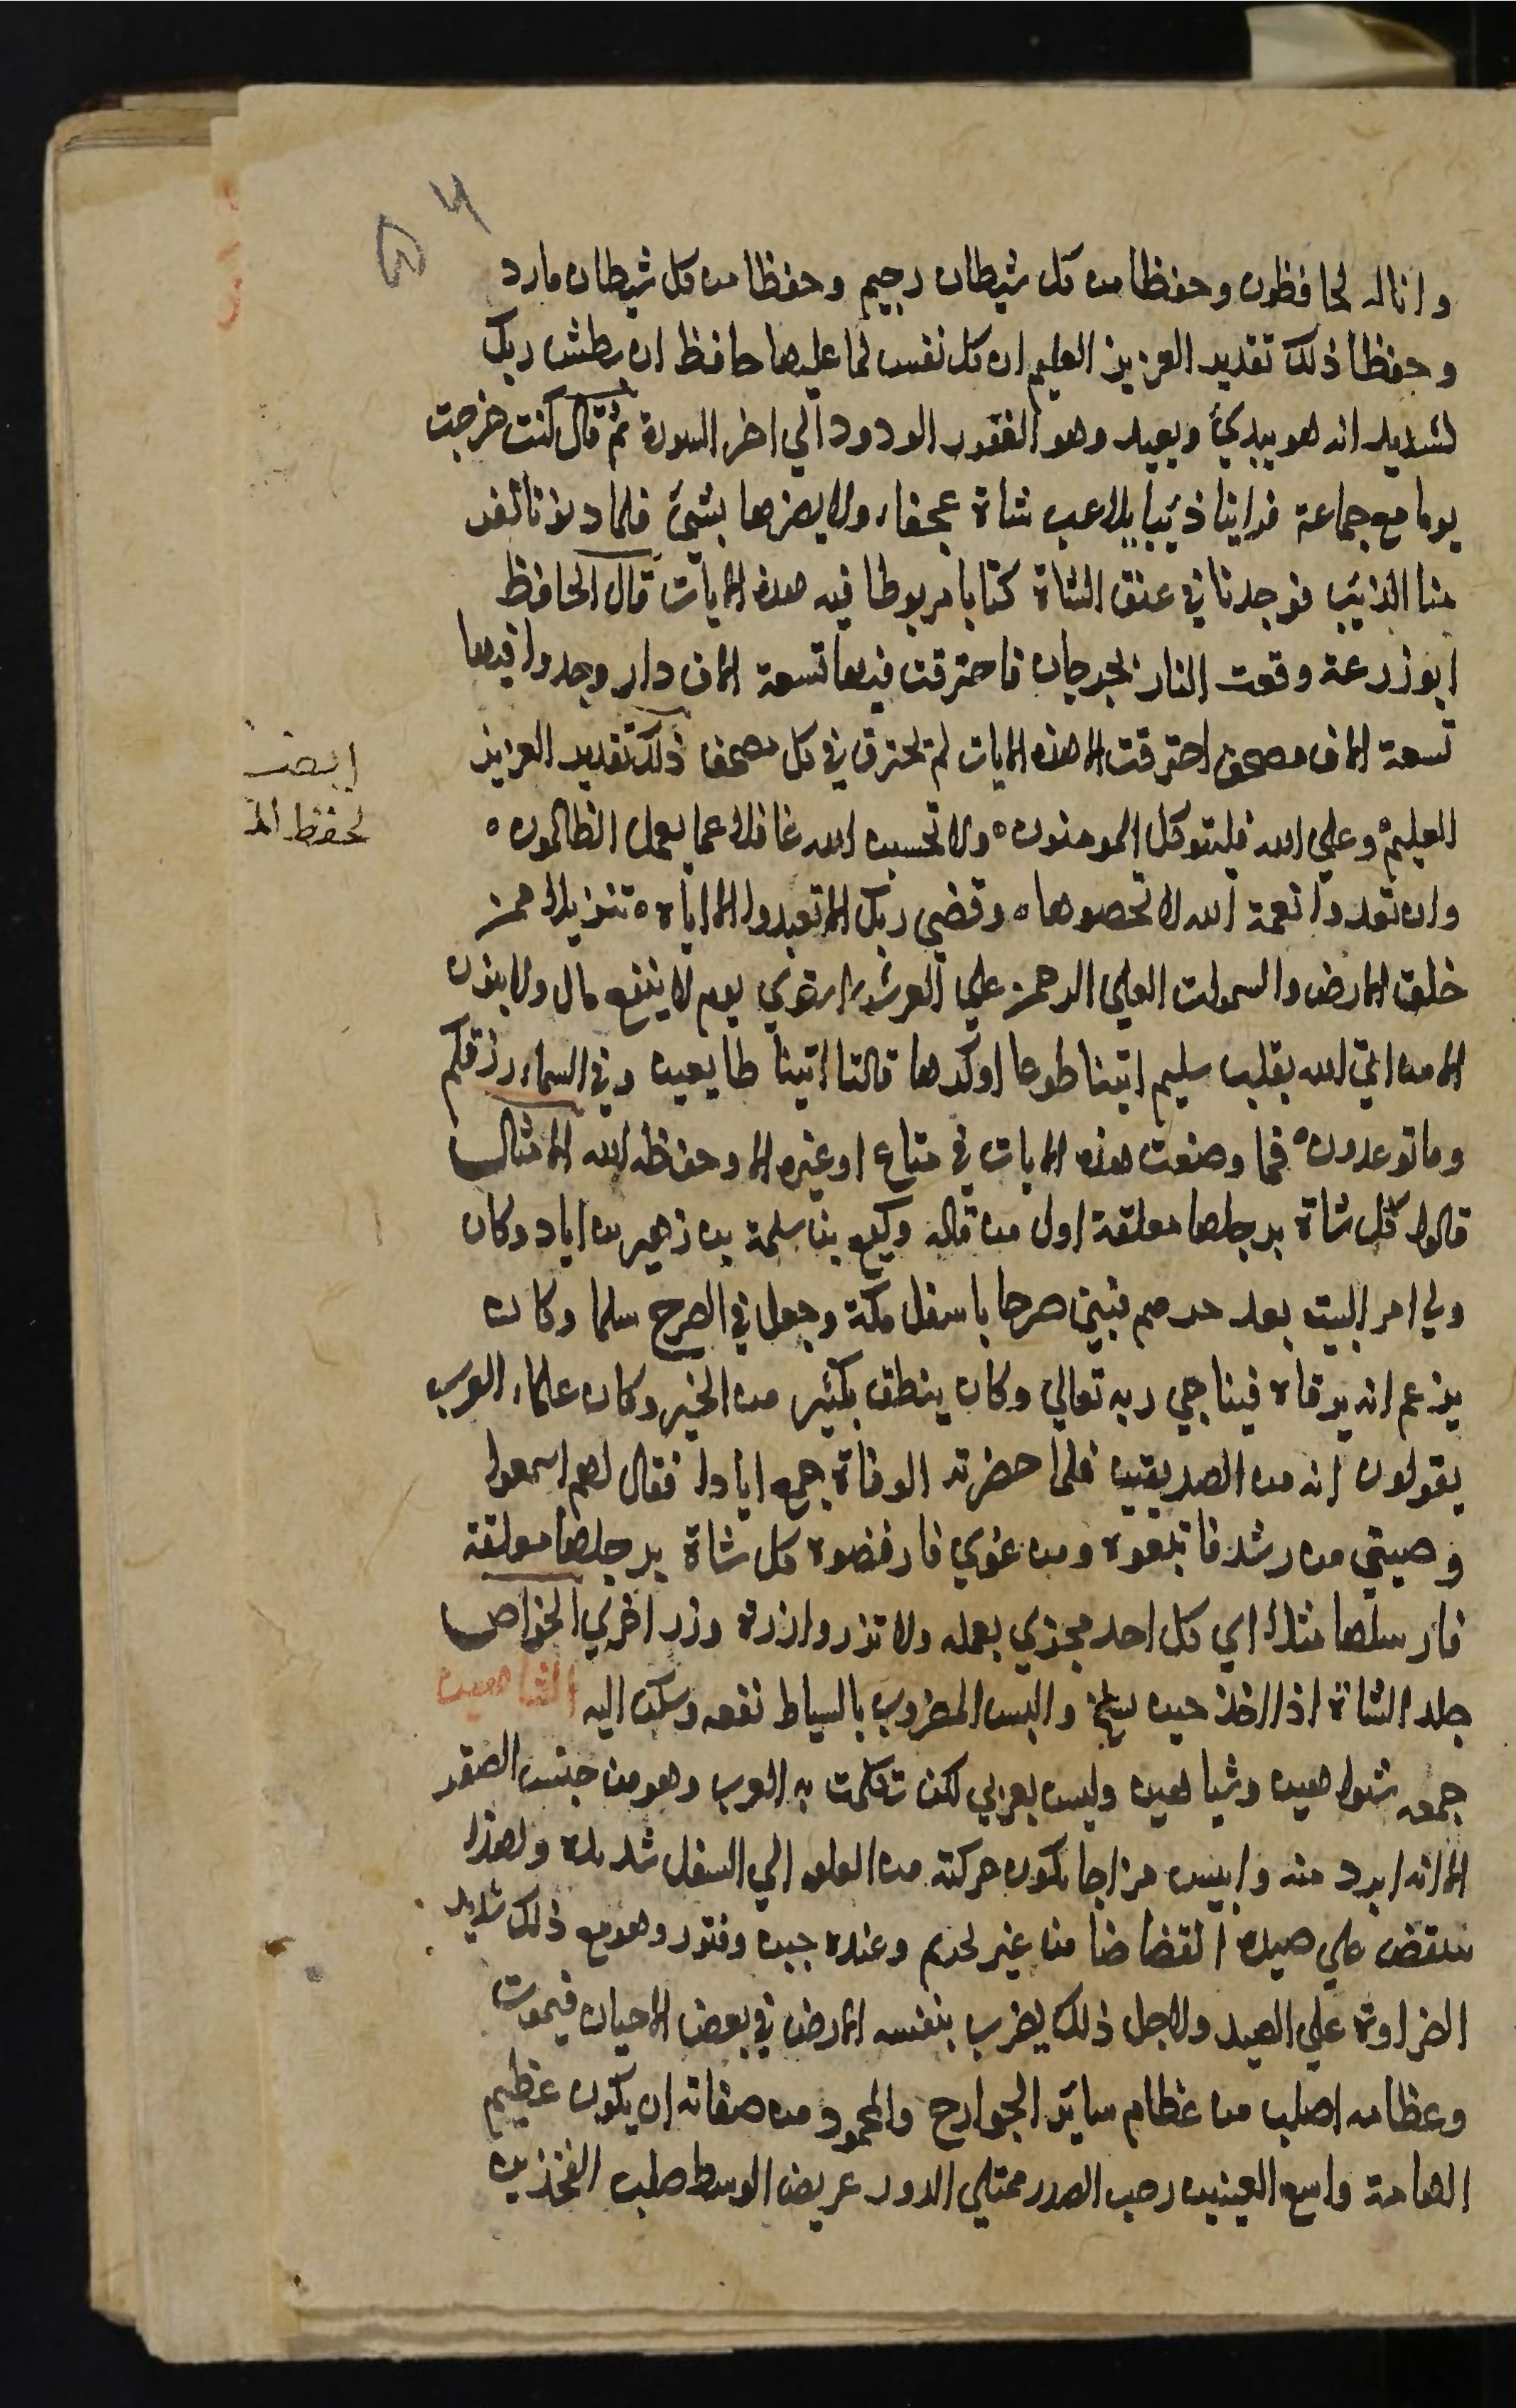 وانا له لحافظون وحفظا من كل شيطان رجيم وحفظا من كل شيطان مارد
وحفظا ذلك تقدير العزيز العليم ان كل نفس لما عليها حافظ ان بطش ربك
لشديد انه هو يبدئ ويعيد وهو الغفور الودود الي اخر السورة ثم قال كنت خرجت
يوما مع جماعة فراينا ذئبا يلاعب شاة عجفاء ولا يضرها بشئ فلما دنونا نفر
منا الذئب فوجدنا في عنق الشاة كتابا مربوطا فيه هذه الايات قال الحافظ
ابو زرعة وقعت النار بجرجان فاحترقت فيها تسعة الاف دار وجدوا فيها
تسعة الاف مصحف احترقت الا هذه الايات لم تحترق في كل مصحف ذلك تقدير العزيز
العليم وعلي الله فليتوكل المومنون ه ولا تحسبن الله غافلا عما يعمل الظالمون ه
وان تعدوا نعمة الله لا تحصوها ه وقضي ربك الا تعبدوا الا اياه ه تنزيلا ممن
خلق الارض والسموات العلي الرحمن علي العرش استوي يوم لا ينفع مال ولا بنون
الا من اتي الله بقلب سليم ايتيا طوعا او كرها قالتا اتينا طايعين وفي السماء رزقكم
وما توعدون ه فما وضعت هذه الايات في متاع او غيره الا وحفظه الله الامثال
قالوا كل شاة برجلها معلقة اول من قاله وكيع بن سلمة بن زهير بن اياد وكان
ولي امر البيت بعد جرهم فبني صرحا باسفل مكة وجعل في الصرح سلما وكان
يزعم انه يرقاه فيناجي ربه تعالي وكان ينطق بكثير من الخير وكان علماء العرب
يقولون انه من الصديقين فلما حضرته الوفاة جمع ايادا فقال لهم اسمعوا
وصيتي من رشد فاتبعوه ومن غوي فارفضوه كل شاة برجلها معلقة
فارسلها مثلا اي كل احد مجزي بعمله ولا تزر وازرة وزر اخري الخواص
جلد الشاة اذا اخذ حين يسلخ والبس المضروب بالسياط نفعه وسكن اليه الشاهين
جمعه شواهين وشياهين وليس بعربي لكن تكلمت به العرب وهو من جنس الصقر
الا انه ابرد منه وايبس مزاجا يكون حركته من العلو الي السفل شديدة ولهذا
ينقض علي صيده انقضاضا من غير تحريم وعنده جبن وفتور وهو مع ذلك شديد
الضراوة علي الصيد ولاجل ذلك يضرب بنفسه الارض في بعض الاحيان فيموت
وعظامه اصلب من عظام ساير الجوارح والمحمود من صفاته ان يكون عظيم
الهامة واسع العينين رحب الصدر ممتلي الدور عريض الوسط صلب الفخذين
لحفظ